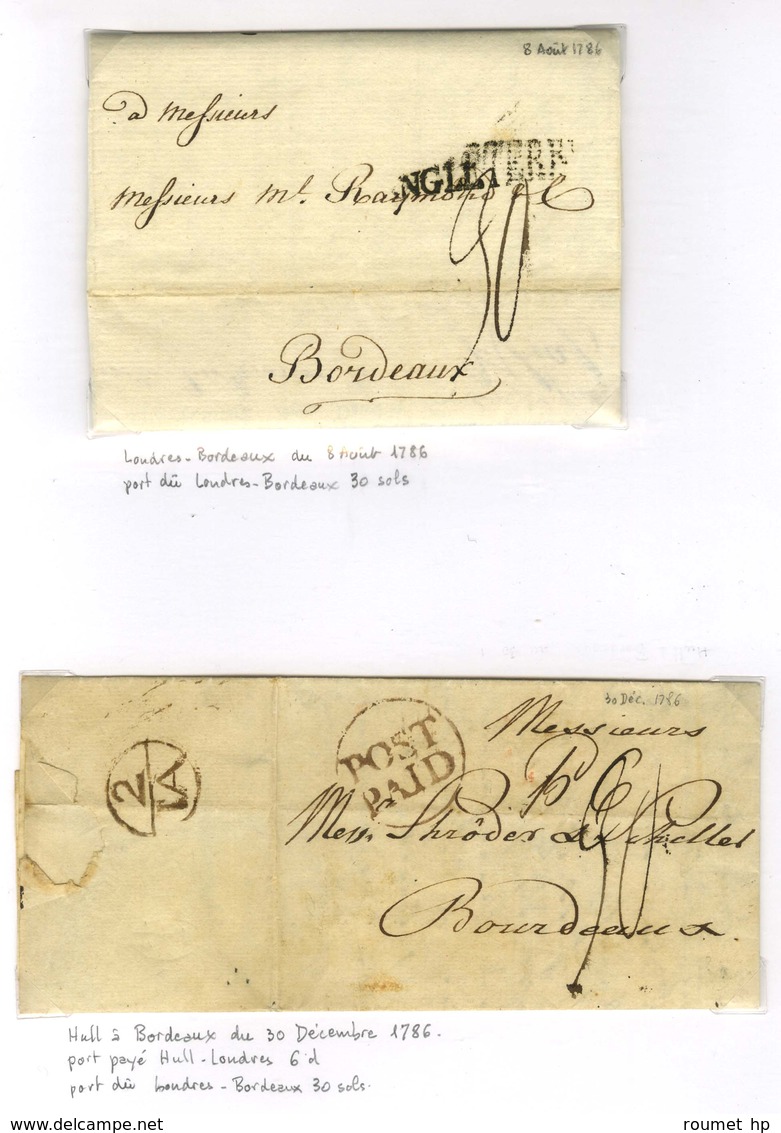 8 Août 1786
a Messieurs
ANGLETERRE
Messieurs Mc. Raymond & C
30
Bordeaux
Londres - Bordeaux du 8 Août 1786
port dû Londres - Bordeaux 30 sols
30 Déc. 1786
Messieurs
POST
PAID
2
LA
Pd 6
Messrs Shröder & Schÿler
30
Bourdeaux
Hull à Bordeaux du 30 Décembre 1786.
port payé Hull - Londres 6 d
port dû Londres - Bordeaux 30 sols.
roumet hp